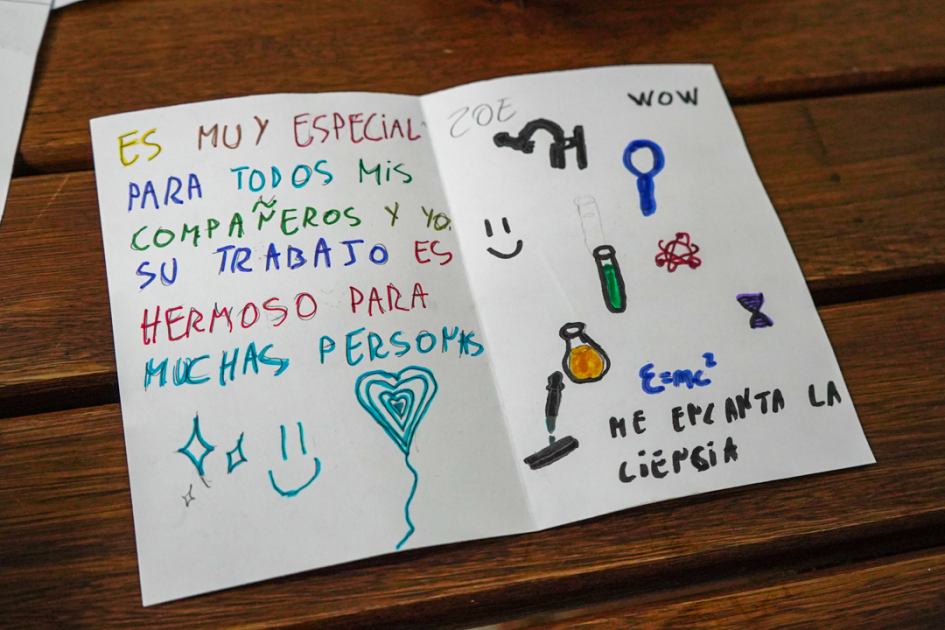 ES MUY ESPECIAL
PARA TODOS MIS
COMPAÑEROS Y YO.
SU TRABAJO ES
HERMOSO PARA
MUCHAS PERSONAS
ZOE
WOW
E=mc²
ME ENCANTA LA
CIENSIA